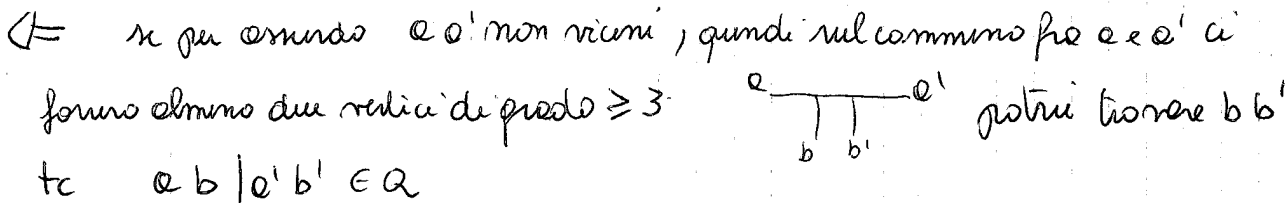 ⇐ se per assurdo a a' non vicini, quindi sul cammino fra a e a' ci
fossero almeno due vertici di grado ≥ 3 a a' potrei trovare b b'
b b'
tc ab|a'b' ∈ Q